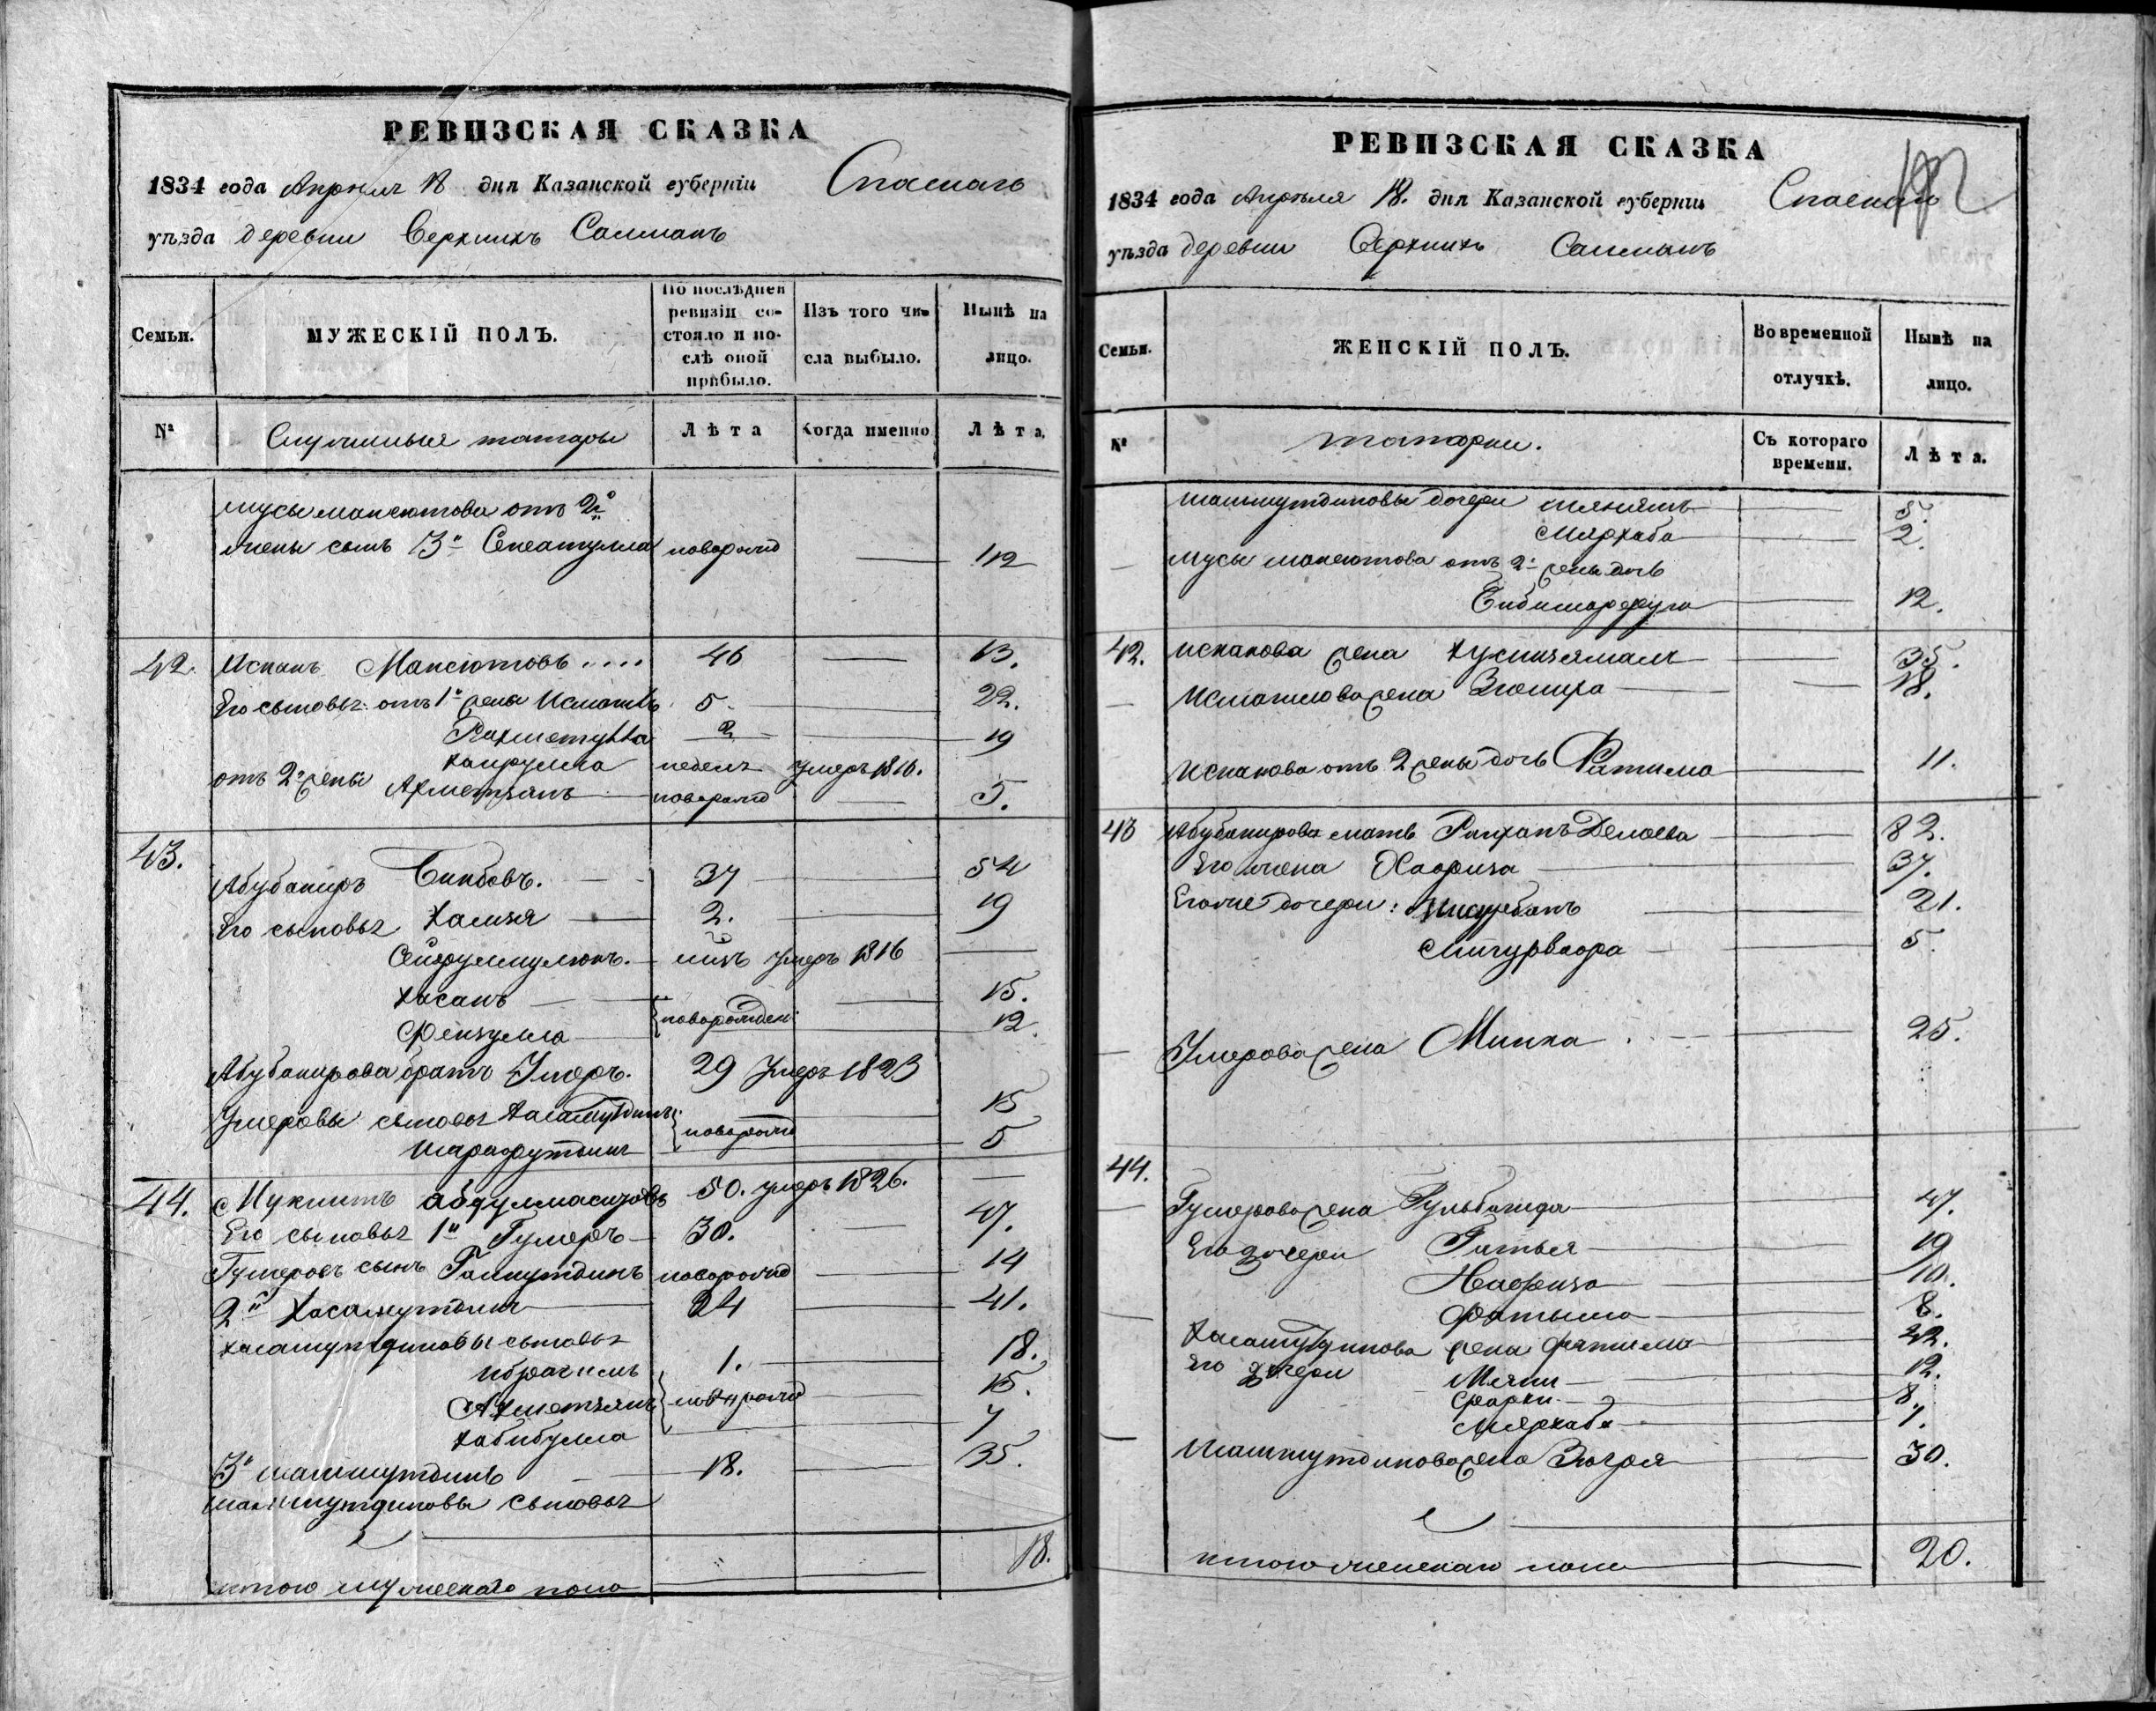 РЕВИЗСКАЯ СКАЗКА
1834 года Апреля 18 дня Казанской губерніи Спаскаго
уѣзда деревни Верхнихъ Салмановъ
Семьи. МУЖЕСКІЙ ПОЛЪ. По послѣдней ревизіи состояло и послѣ оной прибыло. Изъ того числа выбыло. Нынѣ на лицо.
№ Служилыя татары Лѣта Когда именно Лѣта.
Мусы Максютова отъ 2й
жены сынъ 3й новорожд 12
42. Искакъ Максютовъ.... 46 — 13.
Его сыновья: отъ 1й жены Исмаилъ 5. 22.
Рахметулла 2 — 19
Хайрулла недель умеръ 1816.
отъ 2й жены Ахметзянъ новорожд — 5.
43.
Абубакиръ 37 — 54
Его сыновья Хамзя — 2. — 19
умеръ 1816 —
Хасанъ — новорожден — 15.
Фейзулла — 12.
Абубакирова братъ Умеръ. 29 умеръ 1823
Умеровы сыновья Хасамутдинъ новорожд 15
Шарафутдинъ 5
44. Мукмитъ 50. умеръ 1826. —
Его сыновья 1й Гумеръ — 30. — 47.
Гумеровъ сынъ новорожд — 14
2й Хасамутдинъ — 24 — 41.
Хасамутдиновы сыновья
Ибрагимъ 1. — 18.
Ахметзянъ новорожд — 15.
Хабибулла — 7
3й Шаммутдинъ — 18. — 35.
Шаммутдиновы сыновья
итого мужескаго пола — 18.
РЕВИЗСКАЯ СКАЗКА
1834 года Апреля 18. дня Казанской губерніи Спаскаго
уѣзда деревни Верхнихъ Салмановъ
Семьи. ЖЕНСКІЙ ПОЛЪ. Во временной отлучкѣ. Нынѣ на лицо.
№ татарки. Съ котораго времени. Лѣта.
Шаммутдиновы дочери — 5.
Мярхаба — 2.
— Мусы Максютова отъ 2й жены дочь
Бибимарфуга — 12.
42. Искакова жена Хуснизямалъ — 35.
— Исмаилова жена — 18.
Искакова отъ 2 жены дочь Фатима — 11.
43 Абубакирова мать — 82.
Его жена — 37.
Его же дочери: — 21.
— 5.
— Умерова жена Минка — 25.
44.
— Гумерова жена — 47.
Его дочери — 19
Нафиза — 10.
Фатыма — 8.
Хасамутдинова жена Фатима — 42.
Его дочери — 12.
— 8.
Мярхаба — 1.
— Шаммутдинова жена Зюгря — 30.
итого женскаго пола — 20.